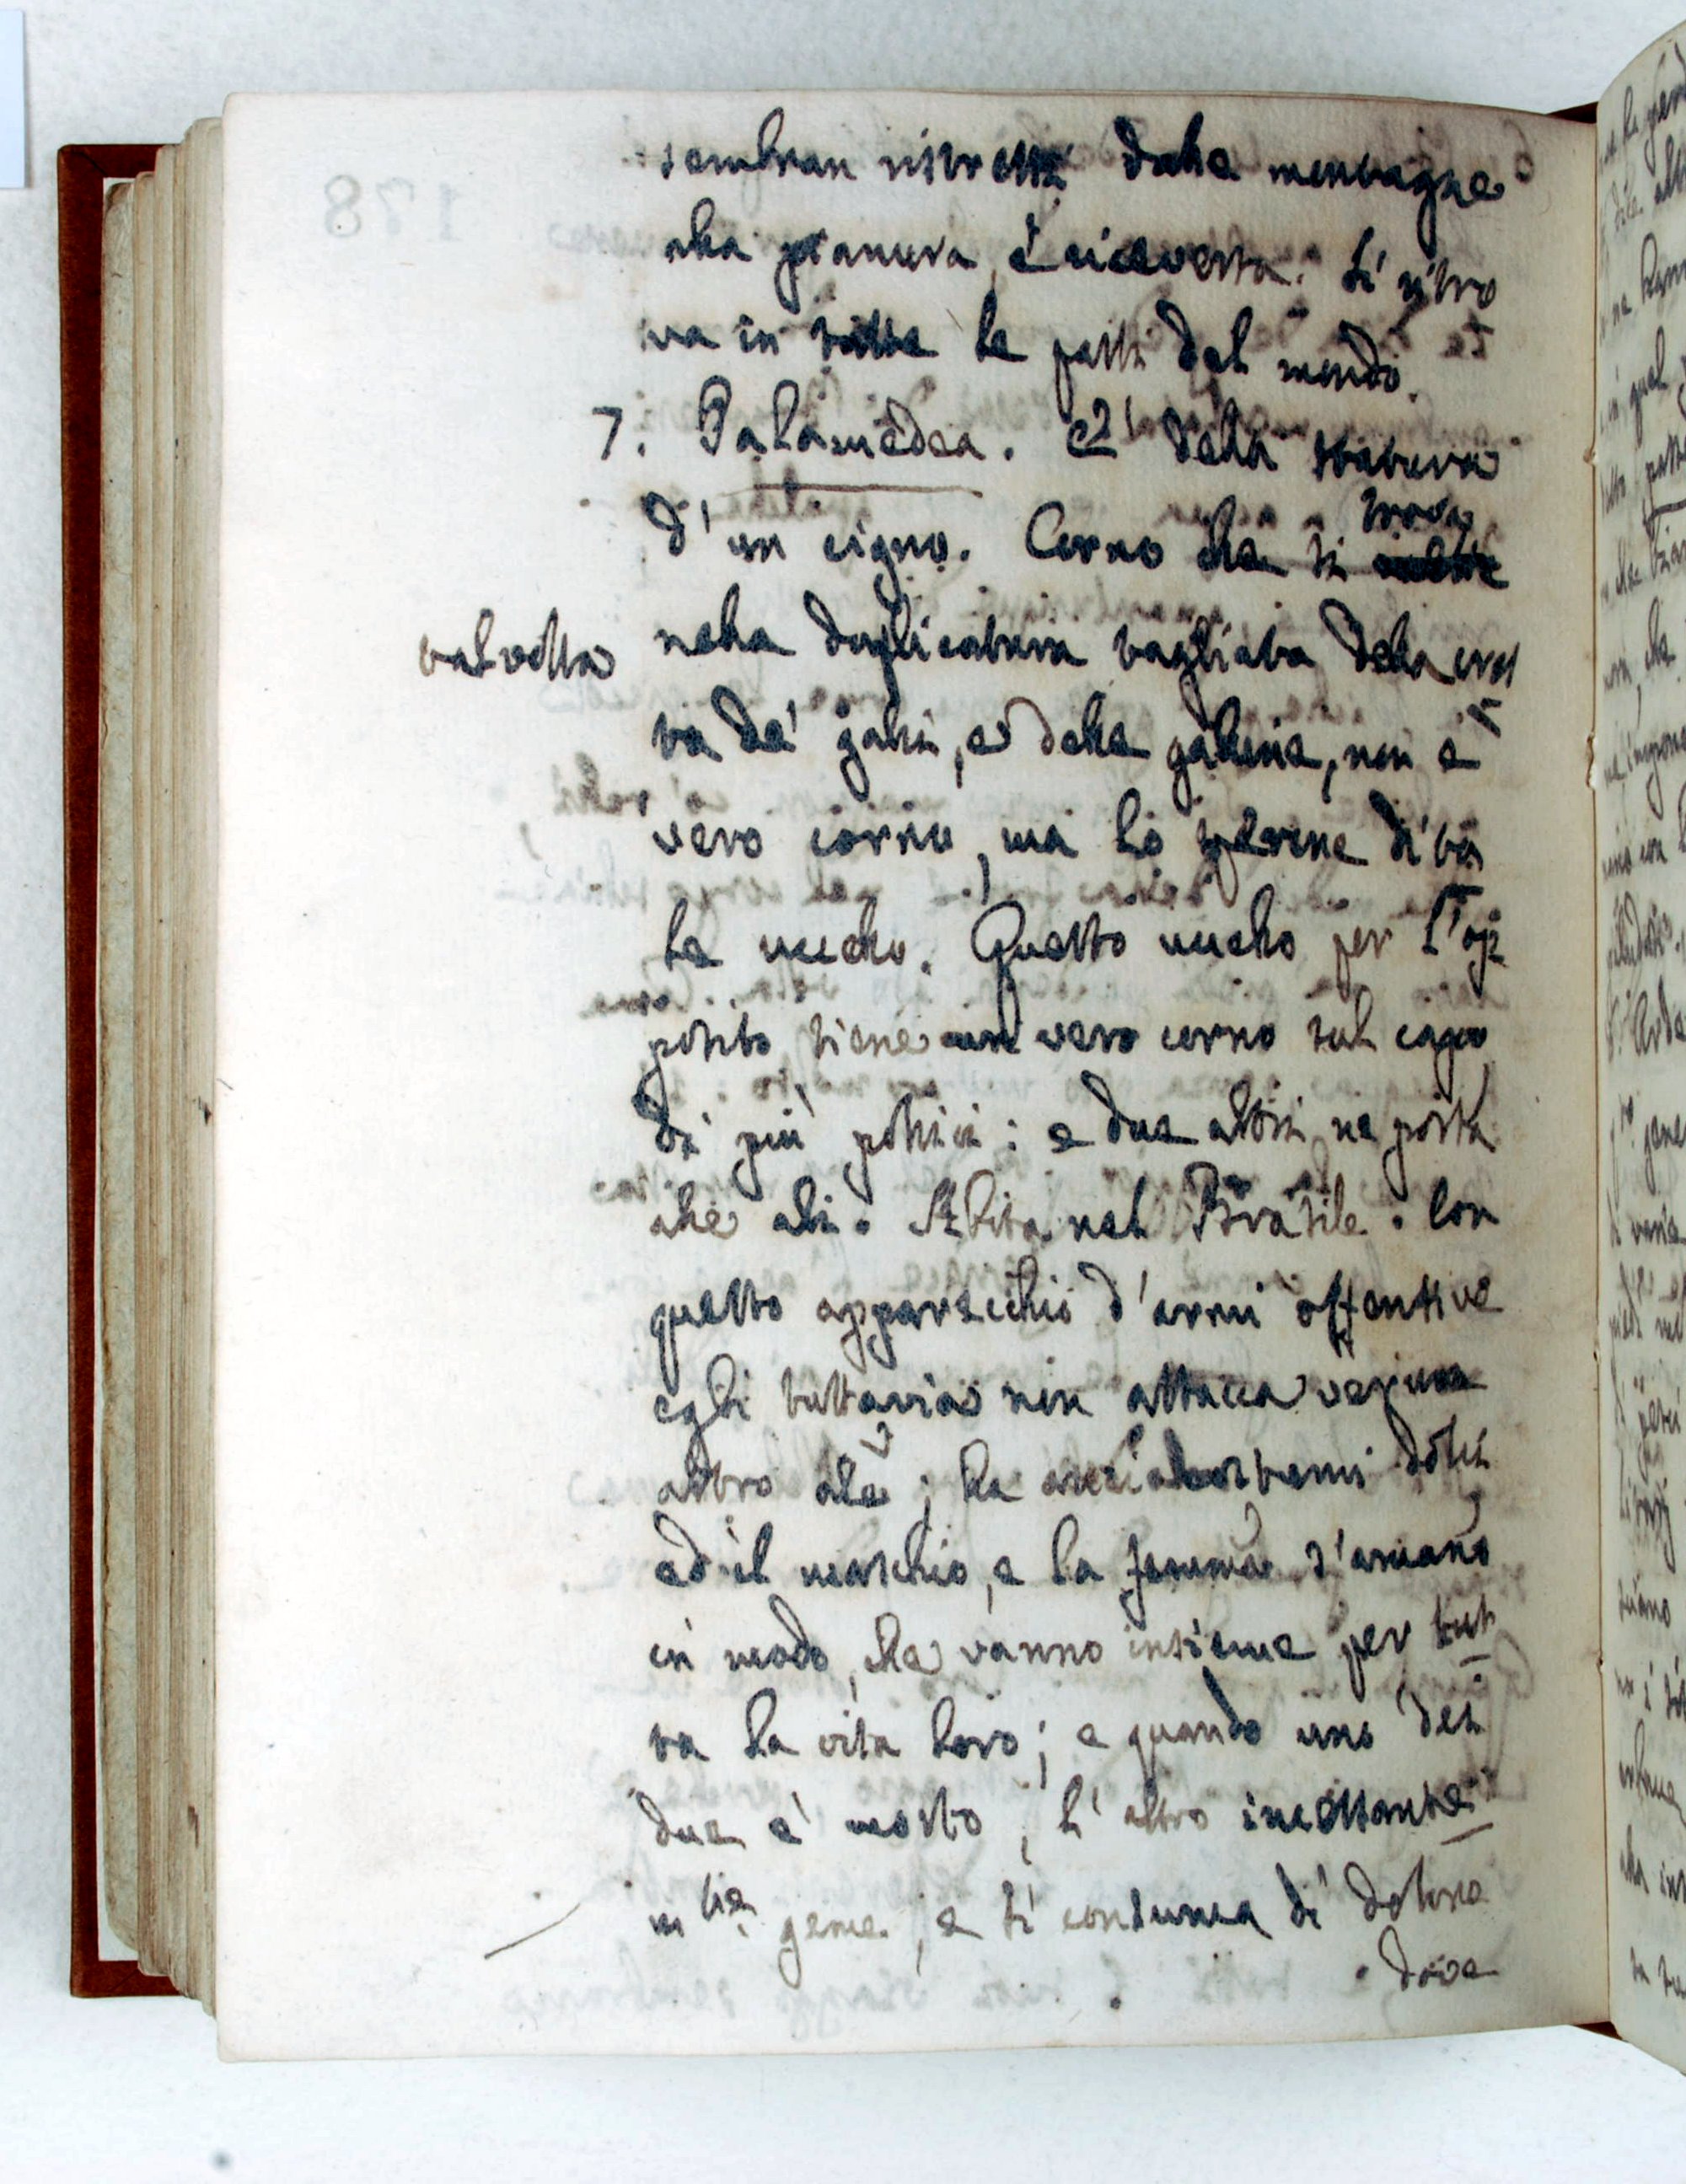 sembran ristrette dalle montagne
alla pianura, e viceversa. Si ritro
va in tutte le parti del mondo.
7. Palamedea. E' della statura
d'un cigno. Corno che si trova
talvolta nella duplicatura tagliata della cres
ta de' galli, e delle galline, non è
vero corno, ma lo sperone di ta
le uccello. Questo uccello per l'op
posito tiene un vero corno sul capo
di più pollici: e due altri ne porta
alle ali. Abita nel Brasile. Con
questo apparecchio d'armi offensive
egli tuttavia non attacca verun
altro ; ha costumi dolci
ed il maschio, e la femmina s'amano
in modo, che vanno insieme per tut
ta la vita loro; e quando uno dei
due è morto, l'altro incessante
m.te geme, e si consuma di dolore
dove